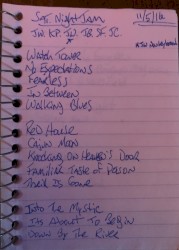 Sat. Night Jam 11/5/16
JW. KP. JW. TB SF. SC.
Watch Tower
No Expectations
Fearless
In Between
Walking Blues
Red House
Cajun Man
Knocking On Heaven's Door
Familiar Taste of Poison
Thrill Is Gone
Into The Mystic
Its About To Begin
Down By The River